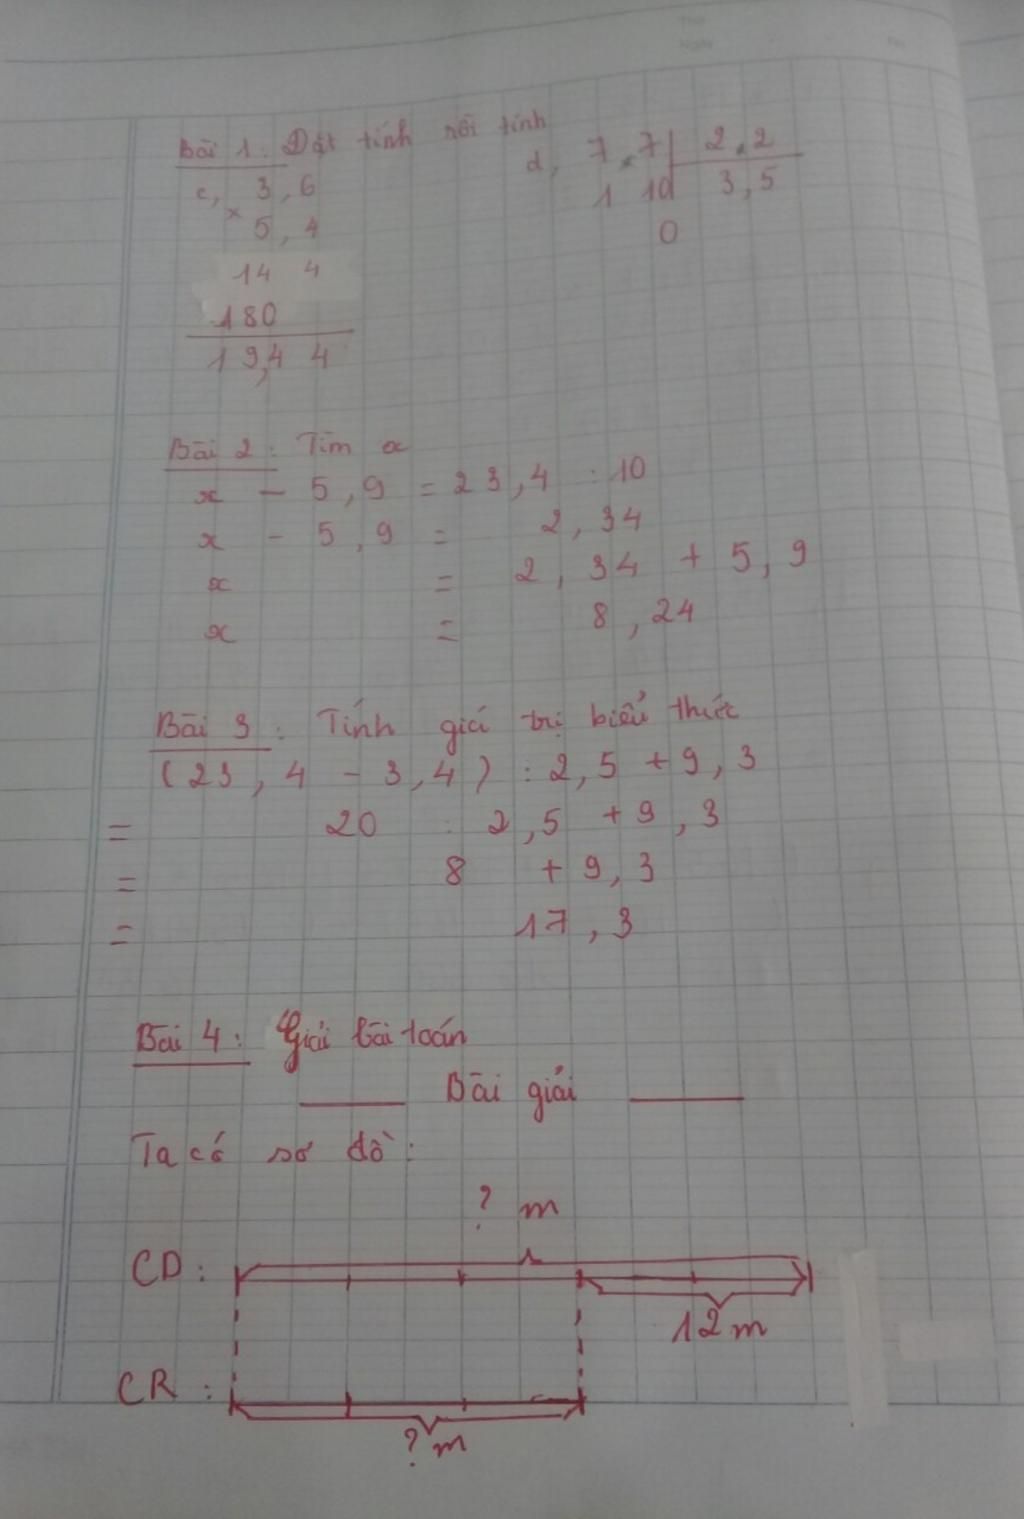 Bài 1: Đặt tính rồi tính
c, 3,6
×
5,4
14 4
180
19,4 4
d, 7,7 2,2
1 10 3,5
0
Bài 2: Tìm x
x - 5,9 = 23,4 : 10
x - 5,9 = 2,34
x = 2,34 + 5,9
x = 8,24
Bài 3: Tính giá trị biểu thức
(23,4 - 3,4) : 2,5 + 9,3
= 20 : 2,5 + 9,3
= 8 + 9,3
= 17,3
Bài 4: Giải bài toán
Bài giải
Ta có sơ đồ:
? m
CD:
12 m
CR:
? m